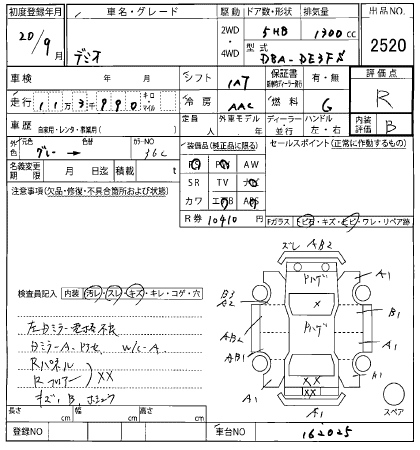 初度登録年月 車名・グレード 駆動 ドア数・形状 排気量 出品NO.
20/9月 デミオ 2WD・4WD 5HB 1300cc 2520
型式 DBA-DE3FS
車検 年 月 シフト 1AT 保証書 有・無 評価点
走行 113千990 キロ・マイル 冷房 AAC 燃料 G R
車歴 自家用・レンタ・教業用( ) 定員 人 外車モデル 年 ディーラー・並行 ハンドル 左・右 内装評価 B
外色 元色 色替 カラーNO
グレー → 36C
名義変更期限 月 日迄 積載 t
装備品(純正品に限る)
PS PW AW
SR TV ナビ
カワ エアB ABS
R券 10410 円
セールスポイント(正常に作動するもの)
注意事項(欠品・修復・不具合箇所および状態)
Fガラス トビ石・キズ・ヒビ・ワレ・リペア跡
検査員記入 内装 汚レ・スレ・キズ・キレ・コゲ・穴
左ドミラー電格不良
Dミラー A、 W/C-A
Rパネル
Rフロアー XX
キズ、B、
ズレ AB2
ハゲ
A1
B3
A2
X
B1
AB2
ハゲ
AB1
A1
XX
A1
A1
XX
A1
スペア
長さ cm 幅 cm 高さ cm
登録NO 車台NO 162025